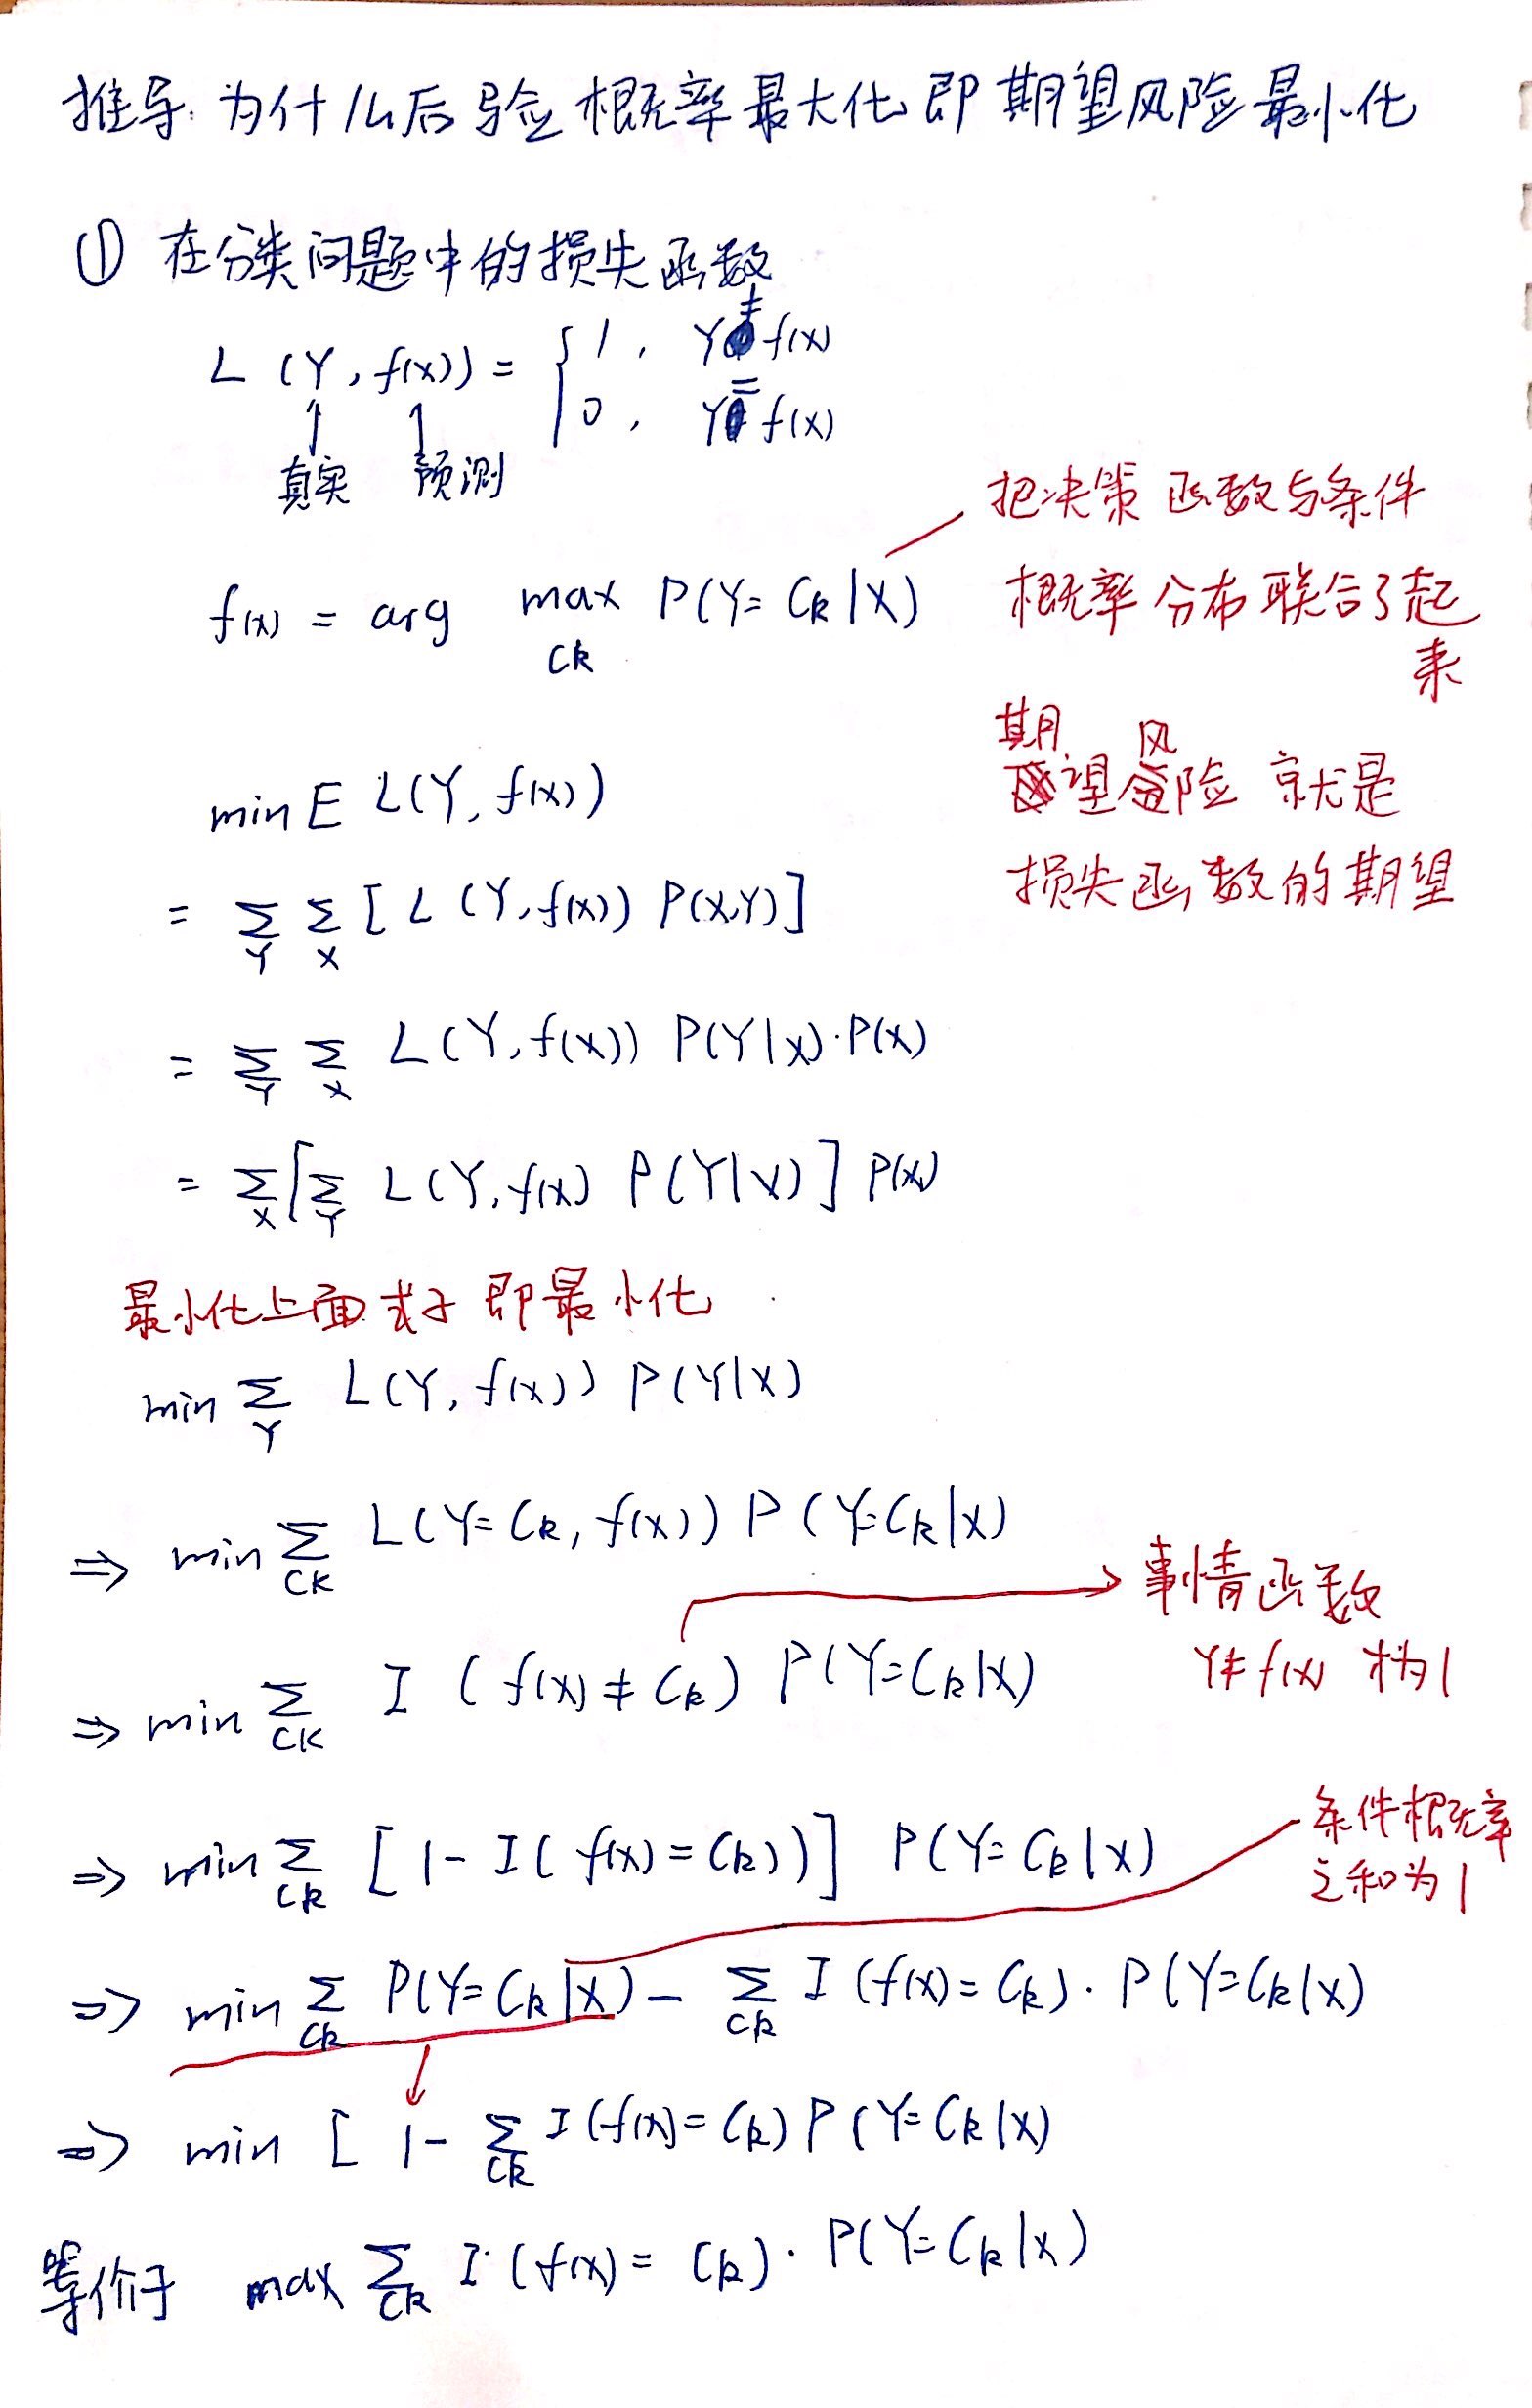 推导: 为什么后验概率最大化即期望风险最小化
① 在分类问题中的损失函数
L (Y, f(x)) = { 1, Y ≠ f(x)
0, Y = f(x)
↑ ↑
真实 预测
把决策函数与条件
f(x) = arg max P(Y= Ck | X)
Ck
概率分布联合了起
来
期 风
望险 就是
损失函数的期望
min E L(Y, f(x))
= Σ_Y Σ_X [ L (Y, f(x)) P(X,Y)]
= Σ_Y Σ_X L(Y, f(x)) P(Y|X)·P(X)
= Σ_X [Σ_Y L(Y, f(x) P(Y|X)] P(X)
最小化上面式子即最小化
min Σ_Y L(Y, f(x)) P(Y|X)
⇒ min Σ_CK L(Y= Ck, f(x)) P (Y=Ck|X)
⇒ min Σ_CK I (f(x) ≠ Ck) P(Y=Ck|X)
→ 事情函数
Y≠f(x) 才为1
⇒ min Σ_Ck [1- I( f(x) = Ck))] P(Y= Ck|X)
条件概率
之和为1
⇒ min Σ_Ck P(Y= Ck|X) - Σ_Ck I (f(x)= Ck). P(Y=Ck|X)
⇒ min [ 1- Σ_Ck I (f(x)= Ck) P (Y= Ck|X)
等价于 max Σ_Ck I (f(x) = Ck). P(Y= Ck|X)